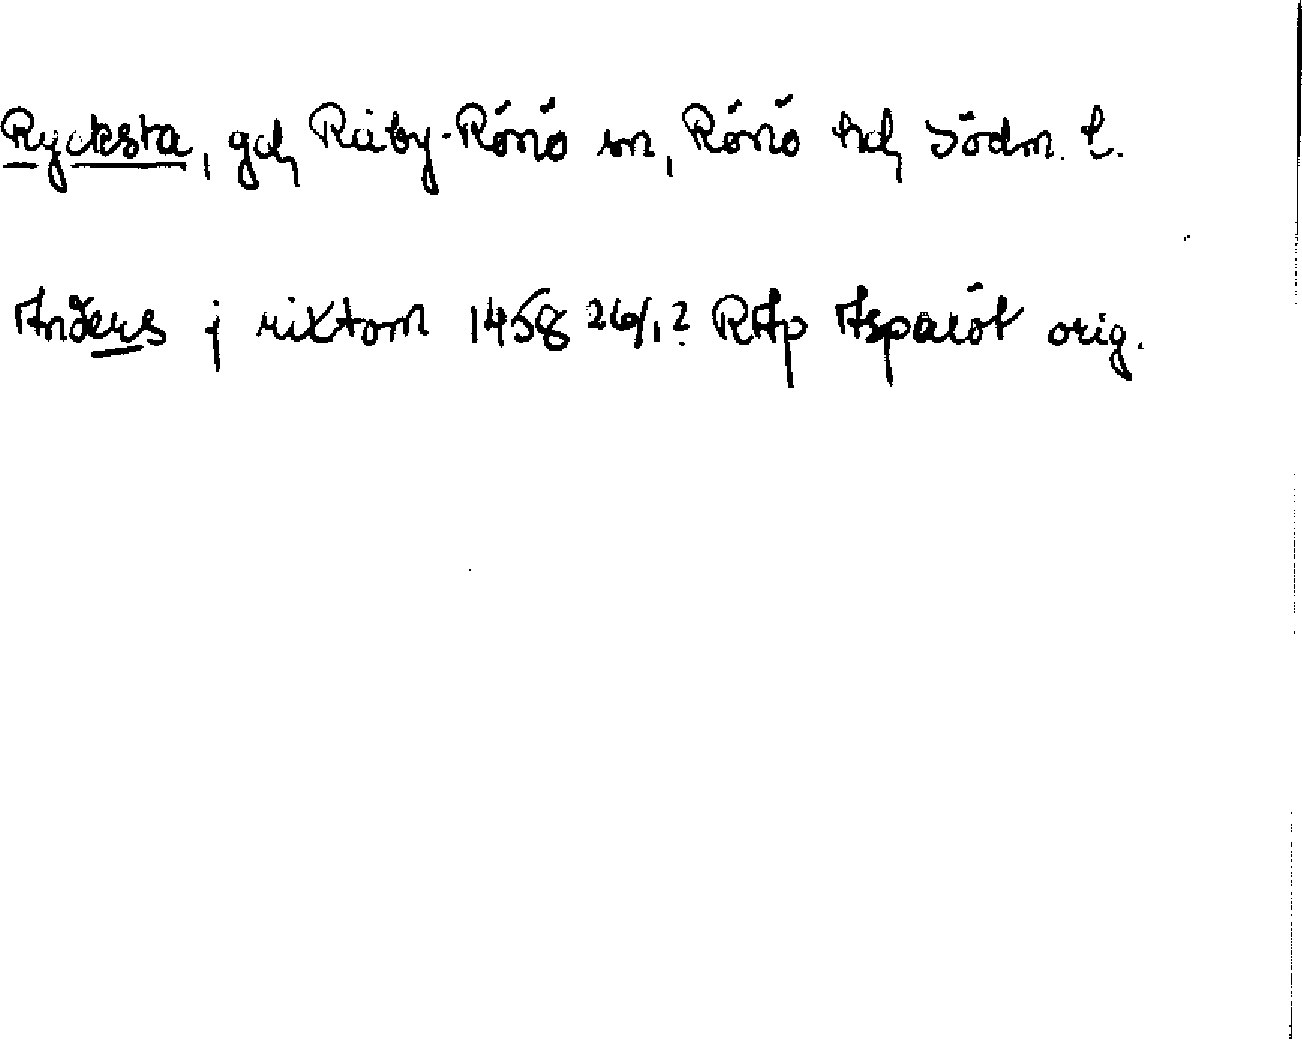 Rycksta, gd, Råby-Rönö sn, Rönö hd, Södm. l.
Anders j rixtom 1458 26/1? RAp Asparöt orig.